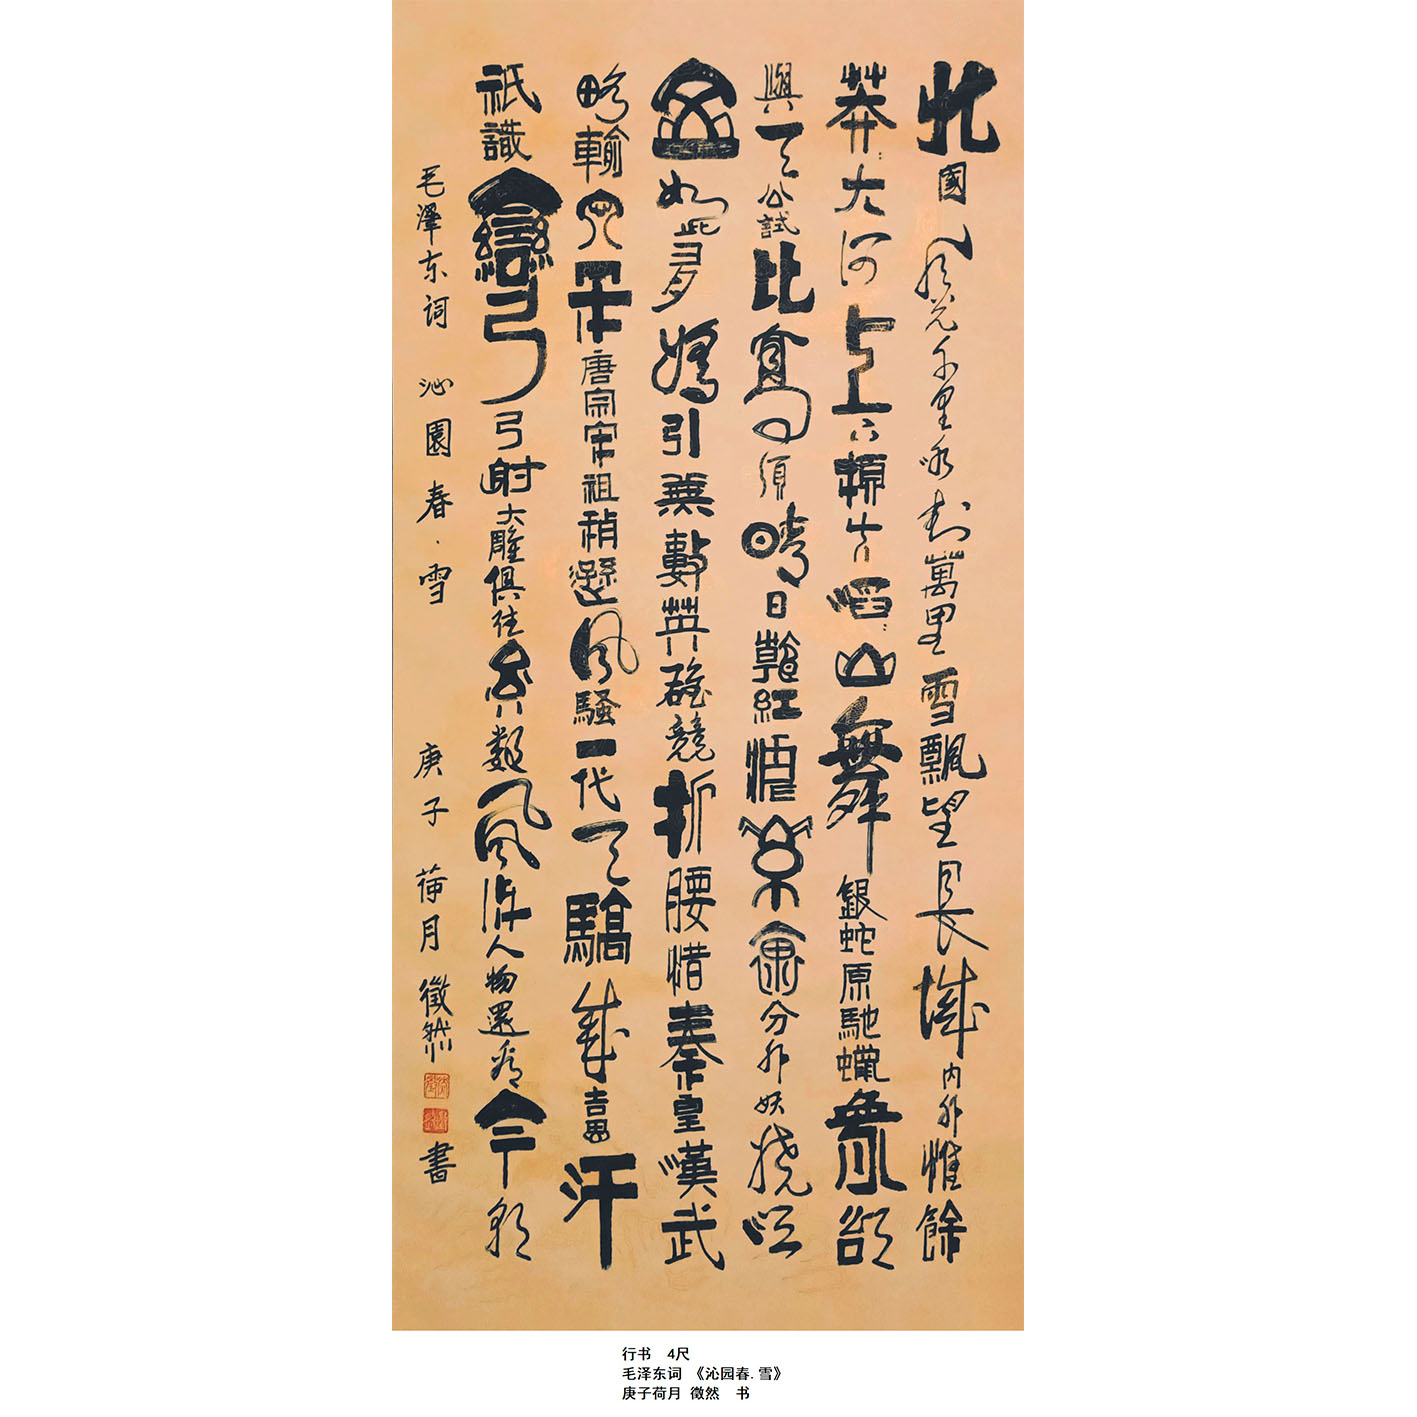 北國風光千里冰封萬里雪飄望長城內外惟餘
莽:大河上下頓失滔:山舞銀蛇原馳蠟象欲
與天公試比高須晴日看紅裝素裹分外妖嬈江
山如此多嬌引無數英雄競折腰惜秦皇漢武
略輸文采唐宗宋祖稍遜風騷一代天驕成吉思汗
祇識彎弓射大雕俱往矣數風流人物還看今朝
毛澤东詞 沁園春·雪 庚子荷月 徵然 書
行书 4尺
毛泽东词 《沁园春.雪》
庚子荷月 徵然 书